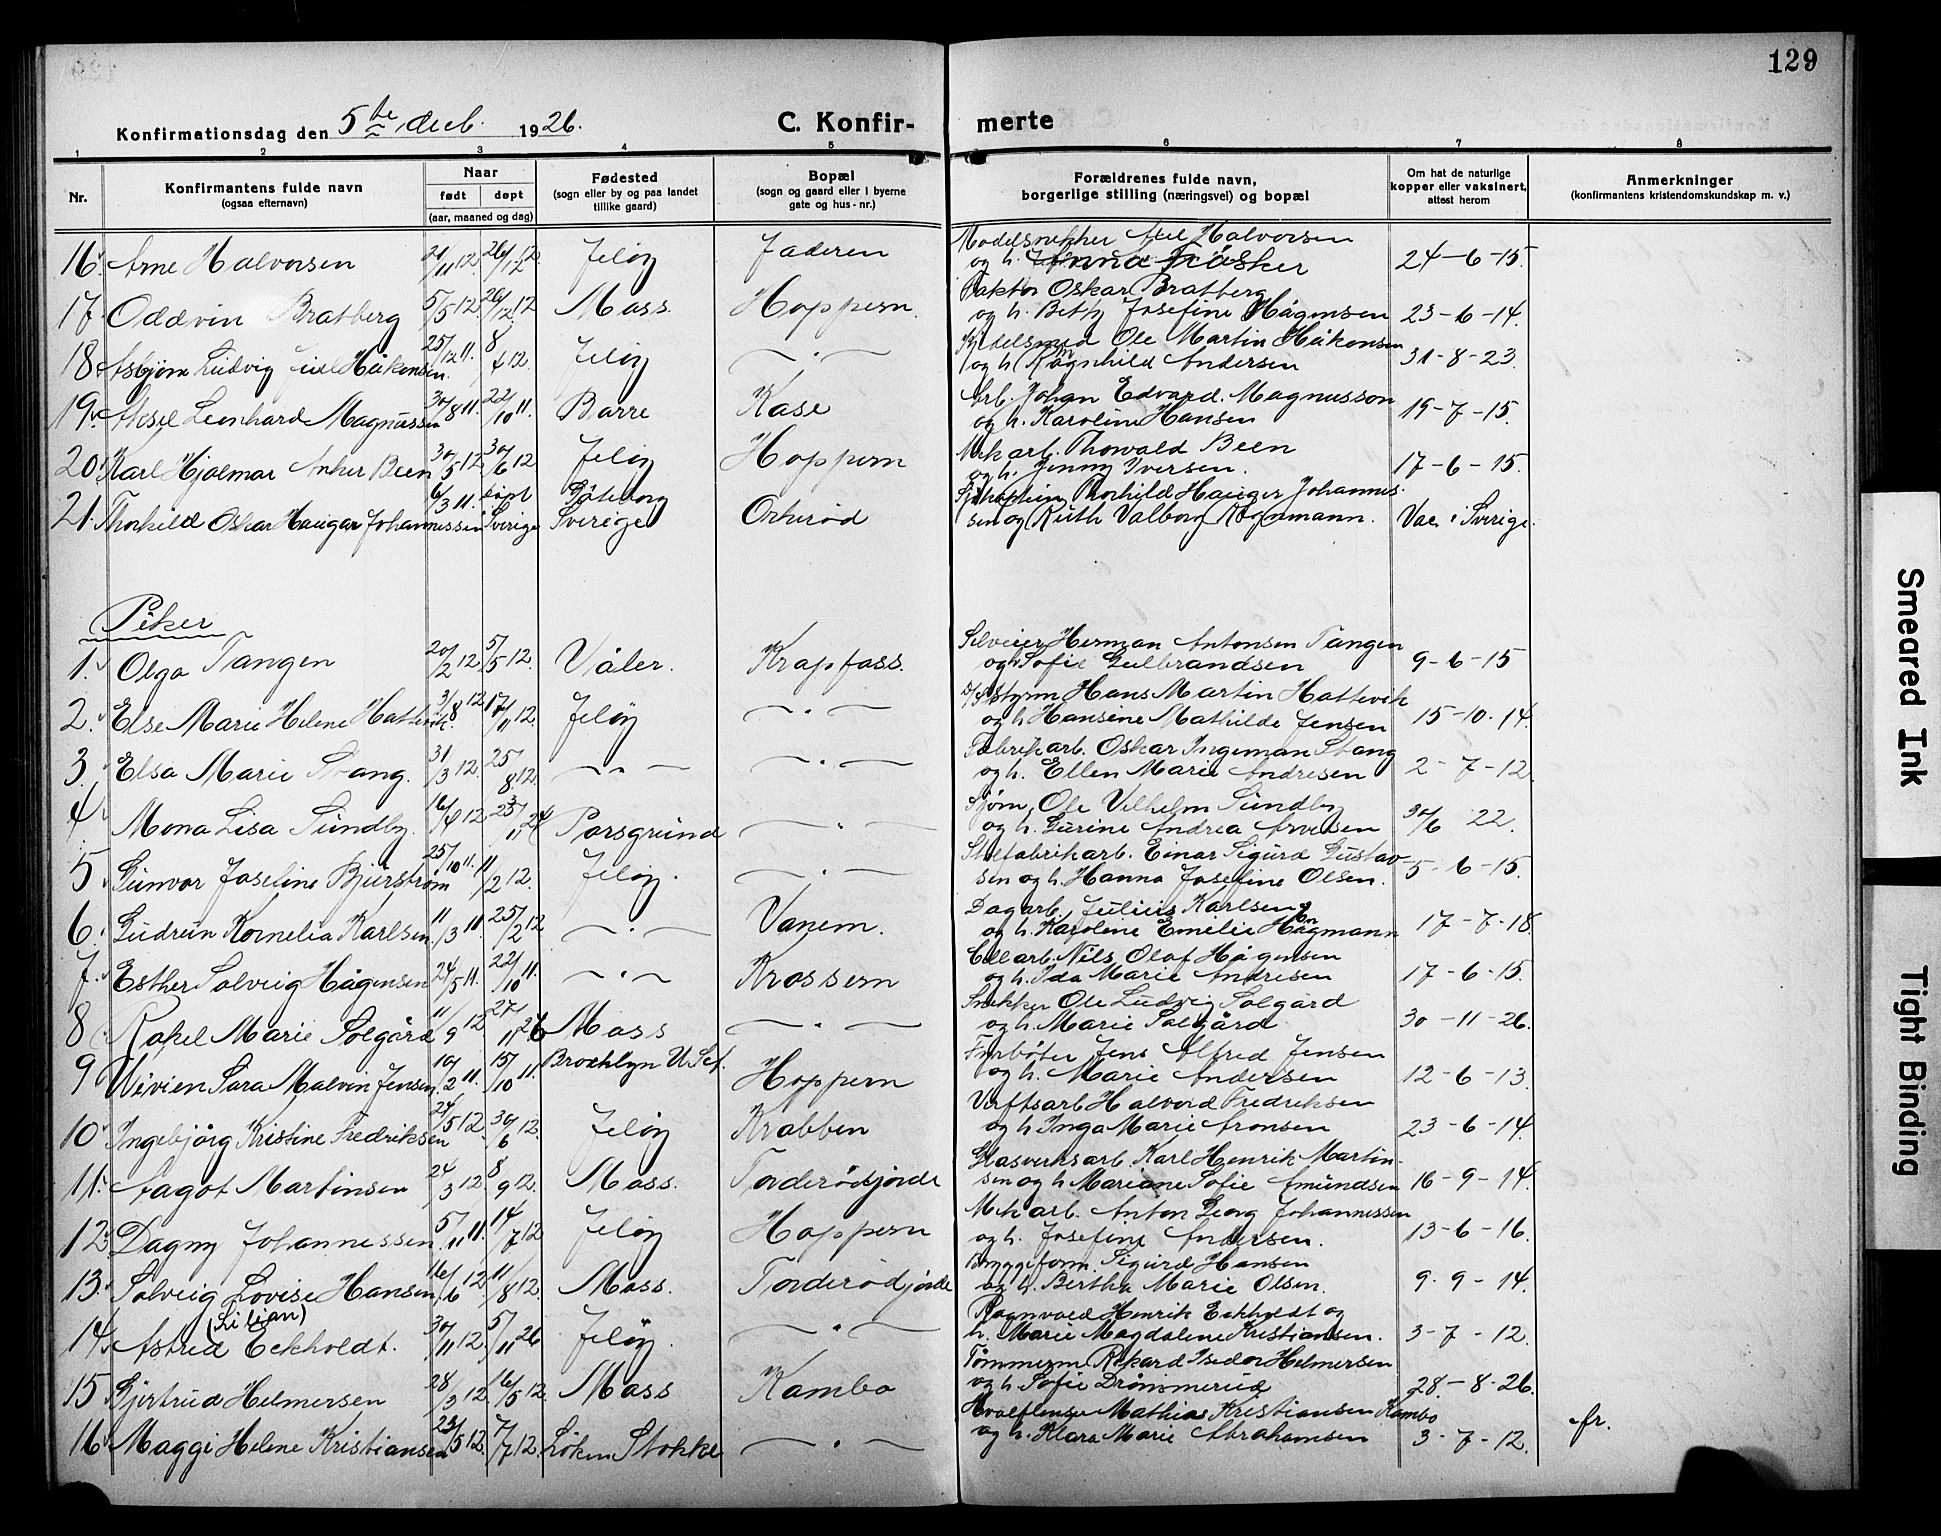 129
Konfirmationsdag den 5te decb. 1926.
C. Konfir-
merte
1 2 3 4 5 6 7 8
Nr.
Konfirmantens fulde navn
(ogsaa efternavn)
Naar
født døpt
(aar, maaned og dag)
Fødested
(sogn eller by og paa landet
tillike gaard)
Bopæl
(sogn og gaard eller i byerne
gate og hus-nr.)
Forældrenes fulde navn,
borgerlige stilling (næringsvei) og bopæl
Om hat de naturlige
kopper eller vaksinert,
attest herom
Anmerkninger
(konfirmantens kristendomskundskap m. v.)
16. Arne Halvorsen 21/11 12 26/12 12 Jeløy Jaderen Modelsnekker Axel Halvorsen
og h. Anna Fråsker 24-6-15.
17. Oddvin Bratberg 5/5 12 26/12 12 Moss. Hoppern. Faktor Oskar Bratberg
og h. Betty Josefine Hågensen 23-6-14.
18 Asbjørn Ludvig Håkonsen 25/12 11. 8/4 12. Jeløy — " — Kjedelsmed Ole Martin Håkonsen
og h. Ragnhild Andersen 31-8-23.
19. Aksel Leonhard Magnussen 30/8 11. 22/10 11. Borre Kase Arb. Johan Edvard Magnusson
og h. Karoline Hansen 19-7-15.
20. Karl Hjalmar Anker Been 30/5 12 30/6 12 Jeløy Hoppern Mek arb. Thorvald Been
og h. Jenny Iversen. 17-6-15.
21. Thorkild Oskar Hauger Johannessen 6/3 11. døpt Sverige Göteborg Sverige Orkerød Thorkild Hauger Johannes-
sen og Ruth Valborg 	Vac. i Sverige.
Piker
1. Olga Tangen 20/2 12. 5/5 12. Våler. Krapfoss. Selveier Herman Antonsen Tangen
og h Sofie Gulbrandsen 9-6-15
2. Else Marie Helene Hattevik. 3/8 12 17/11 12. Jeløy — " — styrm Hans Martin Hattevik
og h Hansine Mathilde Jensen 15-10-14.
3. Elsa Marie Stang. 31/3 12. 25/8 12. — " — — " — Fabrikarb. Oskar Ingeman Stang
og h. Ellen Marie Andresen 2-7-12.
4. Mona Lisa Sundby. 16/4 12 23/11 24 Porsgrund — " — Sjøm. Ole Vilhelm Sundby
og h. Gurine Andrea Arvesen 30/6 22.
5. Gunvor Josefine Bjurstrøm 25/10 11. 11/2 12. Jeløy. — " — Einar Sigurd Gustav-
sen og h. Hanna Josefine Olsen. 5-6-15.
6. Gudrun Kornelia Karlsen 11/3 11. 25/2 12 — " — Vanem. Dagarb. Julius Karlsen
og h. Karoline Emelie Hågmann 17-7-18.
7. Esther Solveig Hågensen 24/5 11. 22/10 11. — " — Krossern Cellarb. Nils Olaf Hågensen
og h. Ida Marie Andresen 17-6-15.
8. Rakel Marie Solgård 11/9 12 27/11 26 Moss — " — Snekker Ole Ludvig Solgård
og h. Marie Solgård 30-11-26.
9 Vivien Sara Malvin Jensen 10/2 11. 15/10 11. Brooklyn U.S.A. Hoppern Fyrbøter Jens Alfred Jensen
og h. Marie Andersen 12-6-13.
10. Ingebjørg Kristine Fredriksen 24/5 12. 30/6 12. Jeløy Krabben Verftsarb Halvord Fredriksen
og h Inga Marie Aronsen 23-6-14.
11. Aagot Martinsen 24/3 12. 8/9 12. Moss. Torderødjordet Glasverksarb. Karl Henrik Martin-
sen og h Mariane Sofie Amundsen 16-9-14.
12. Dagny Johannessen 5/11 11. 14/7 12 Jeløy Hoppern Mek arb. Anton Georg Johannessen
og h. Josefine Andersen. 13-6-16.
13. Solveig Lovise Hansen 16/6 12 11/8 12. Moss. Torderødjorde Byggeform. Sigurd Hansen
og h. Bertha Marie Olsen. 9-9-14.
14. Astrid (Lilian) Eckholdt. 30/11 12. 5/11 26 Jeløy. — " — Ragnvald Henrik Eckholdt og
h. Marie Magdalene Kristiansen. 3-7-12.
15. Gjertrud Helmersen 28/3 12. 16/5 12 Moss Kambo Tømmerm. Rikard Isedor Helmersen
og h. Sofie Drømmerud 28-8-26.
16. Maggi Helene Kristiansen 23/5 12. 7/7 12. Løken Stokke — " — Mathias Kristiansen Kambo
og h. Klara Marie Abrahamsen 3-7-12. fr.
Smeared Ink
Tight Binding